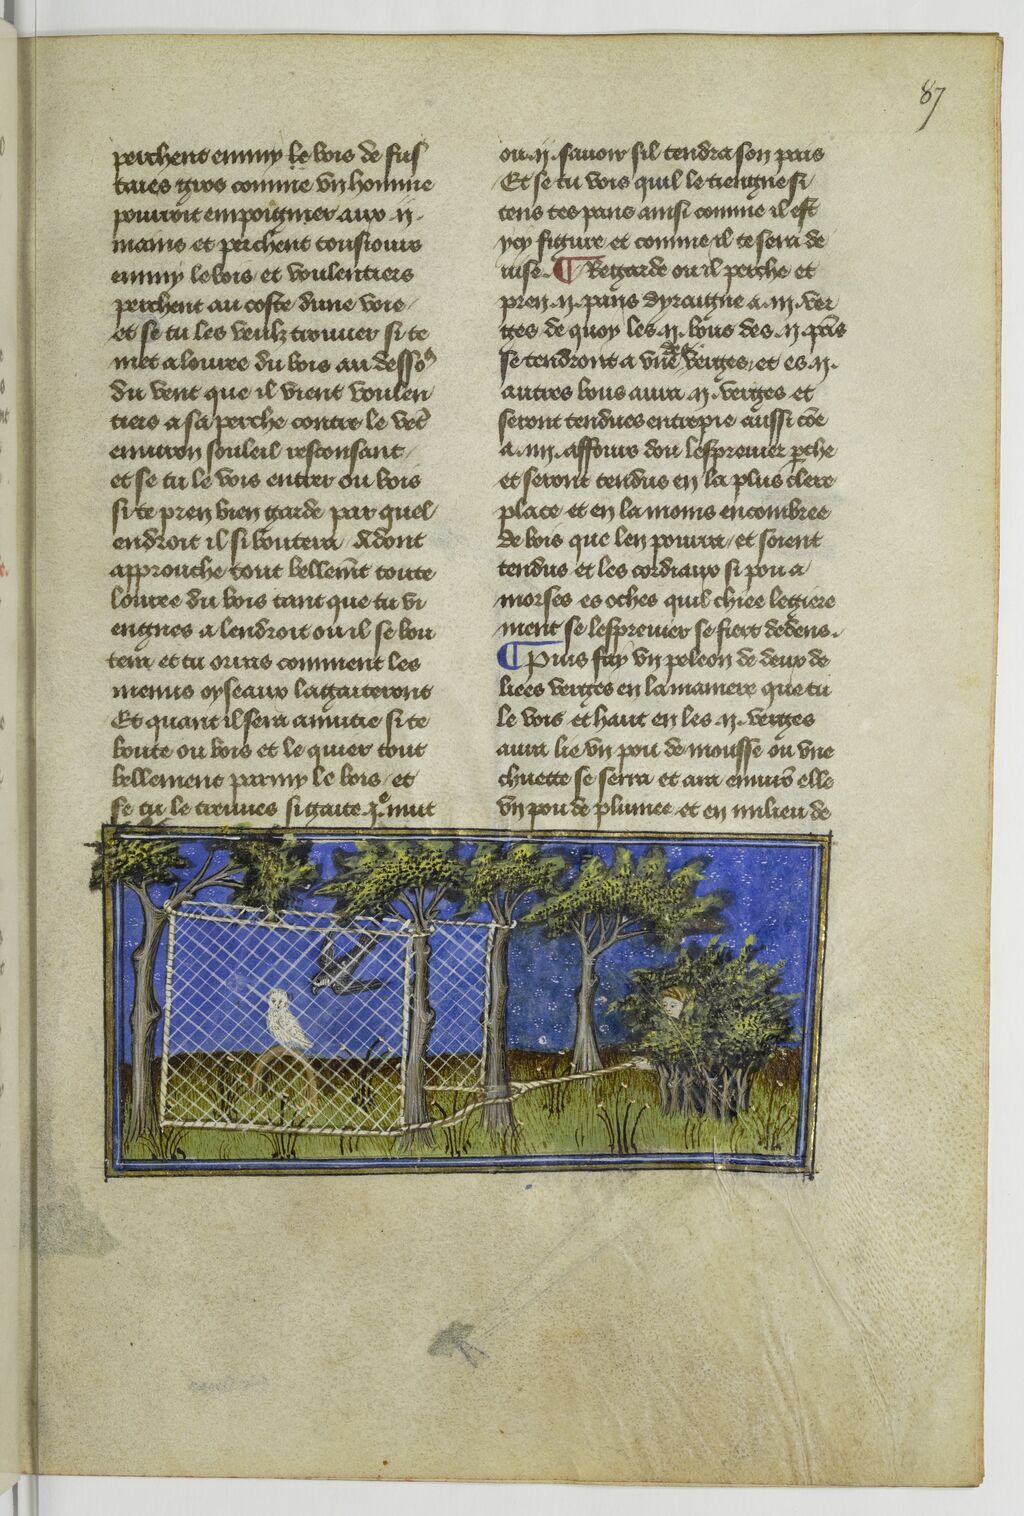 87
perchent emmy le bois de fus
taies gros comme vn homme
pourroit empoignier aux .ij.
mains et perchent tousiours
emmy le bois et voulentiers
perchent au coste dune voie
et se tu les veulz trouuer si te
met a louree du bois au dessoubz
du vent que il vient voulen
tiers a sa perche contre le vēt
enuiron souleil resconsant
et se tu le vois entrer ou bois
si te pren bien garde par quel
endroit il si boutera Adont
approuche tout bellemēt toute
louree du bois tant que tu vi
engnes a lendroit ou il se bou
tera et tu orras comment les
menus oyseaux lagaiteront
Et quant il sera anutie si te
boute ou bois et le quier tout
bellement parmy le bois et
se tu le treuues si gaite mut
ou .ij. sauoir sil tendra son pais
Et se tu vois quil le tiengne si
tens tes pans ainsi comme il est
ycy figure et comme il te sera de
uise. ¶ Regarde ou il perche et
pren .ij. pans dyraigne a .iij. ver
ges de quoy les .ij. bous des .ij. pās
se tendront a vne des verges et es .ij.
autres bous aura .ij. verges et
seront tendues entrepie aussi cōe
a .iiij. affours dou lespreuier perche
et seront tendus en la plus clere
place et en la moins encombree
de bois que len pourra et soient
tendus et les cordiaux si pou a
morses es oches quil chiee legiere
ment se lespreuier se fiert dedens.
¶ Puis fay vn peleon de deux de
liees verges en la maniere que tu
le vois et haut en les .ij. verges
aura lie vn pou de mousse ou vne
chuette se serra et ara enuirō elle
vn pou de plumee et en milieu de